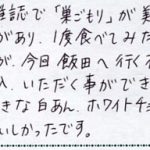 雑誌で「巣ごもり」が美
があり、1度食べてみた
が、今日飯田へ行く行
入、いただく事ができ
きな白あん、ホワイトチョ
いしかったです。